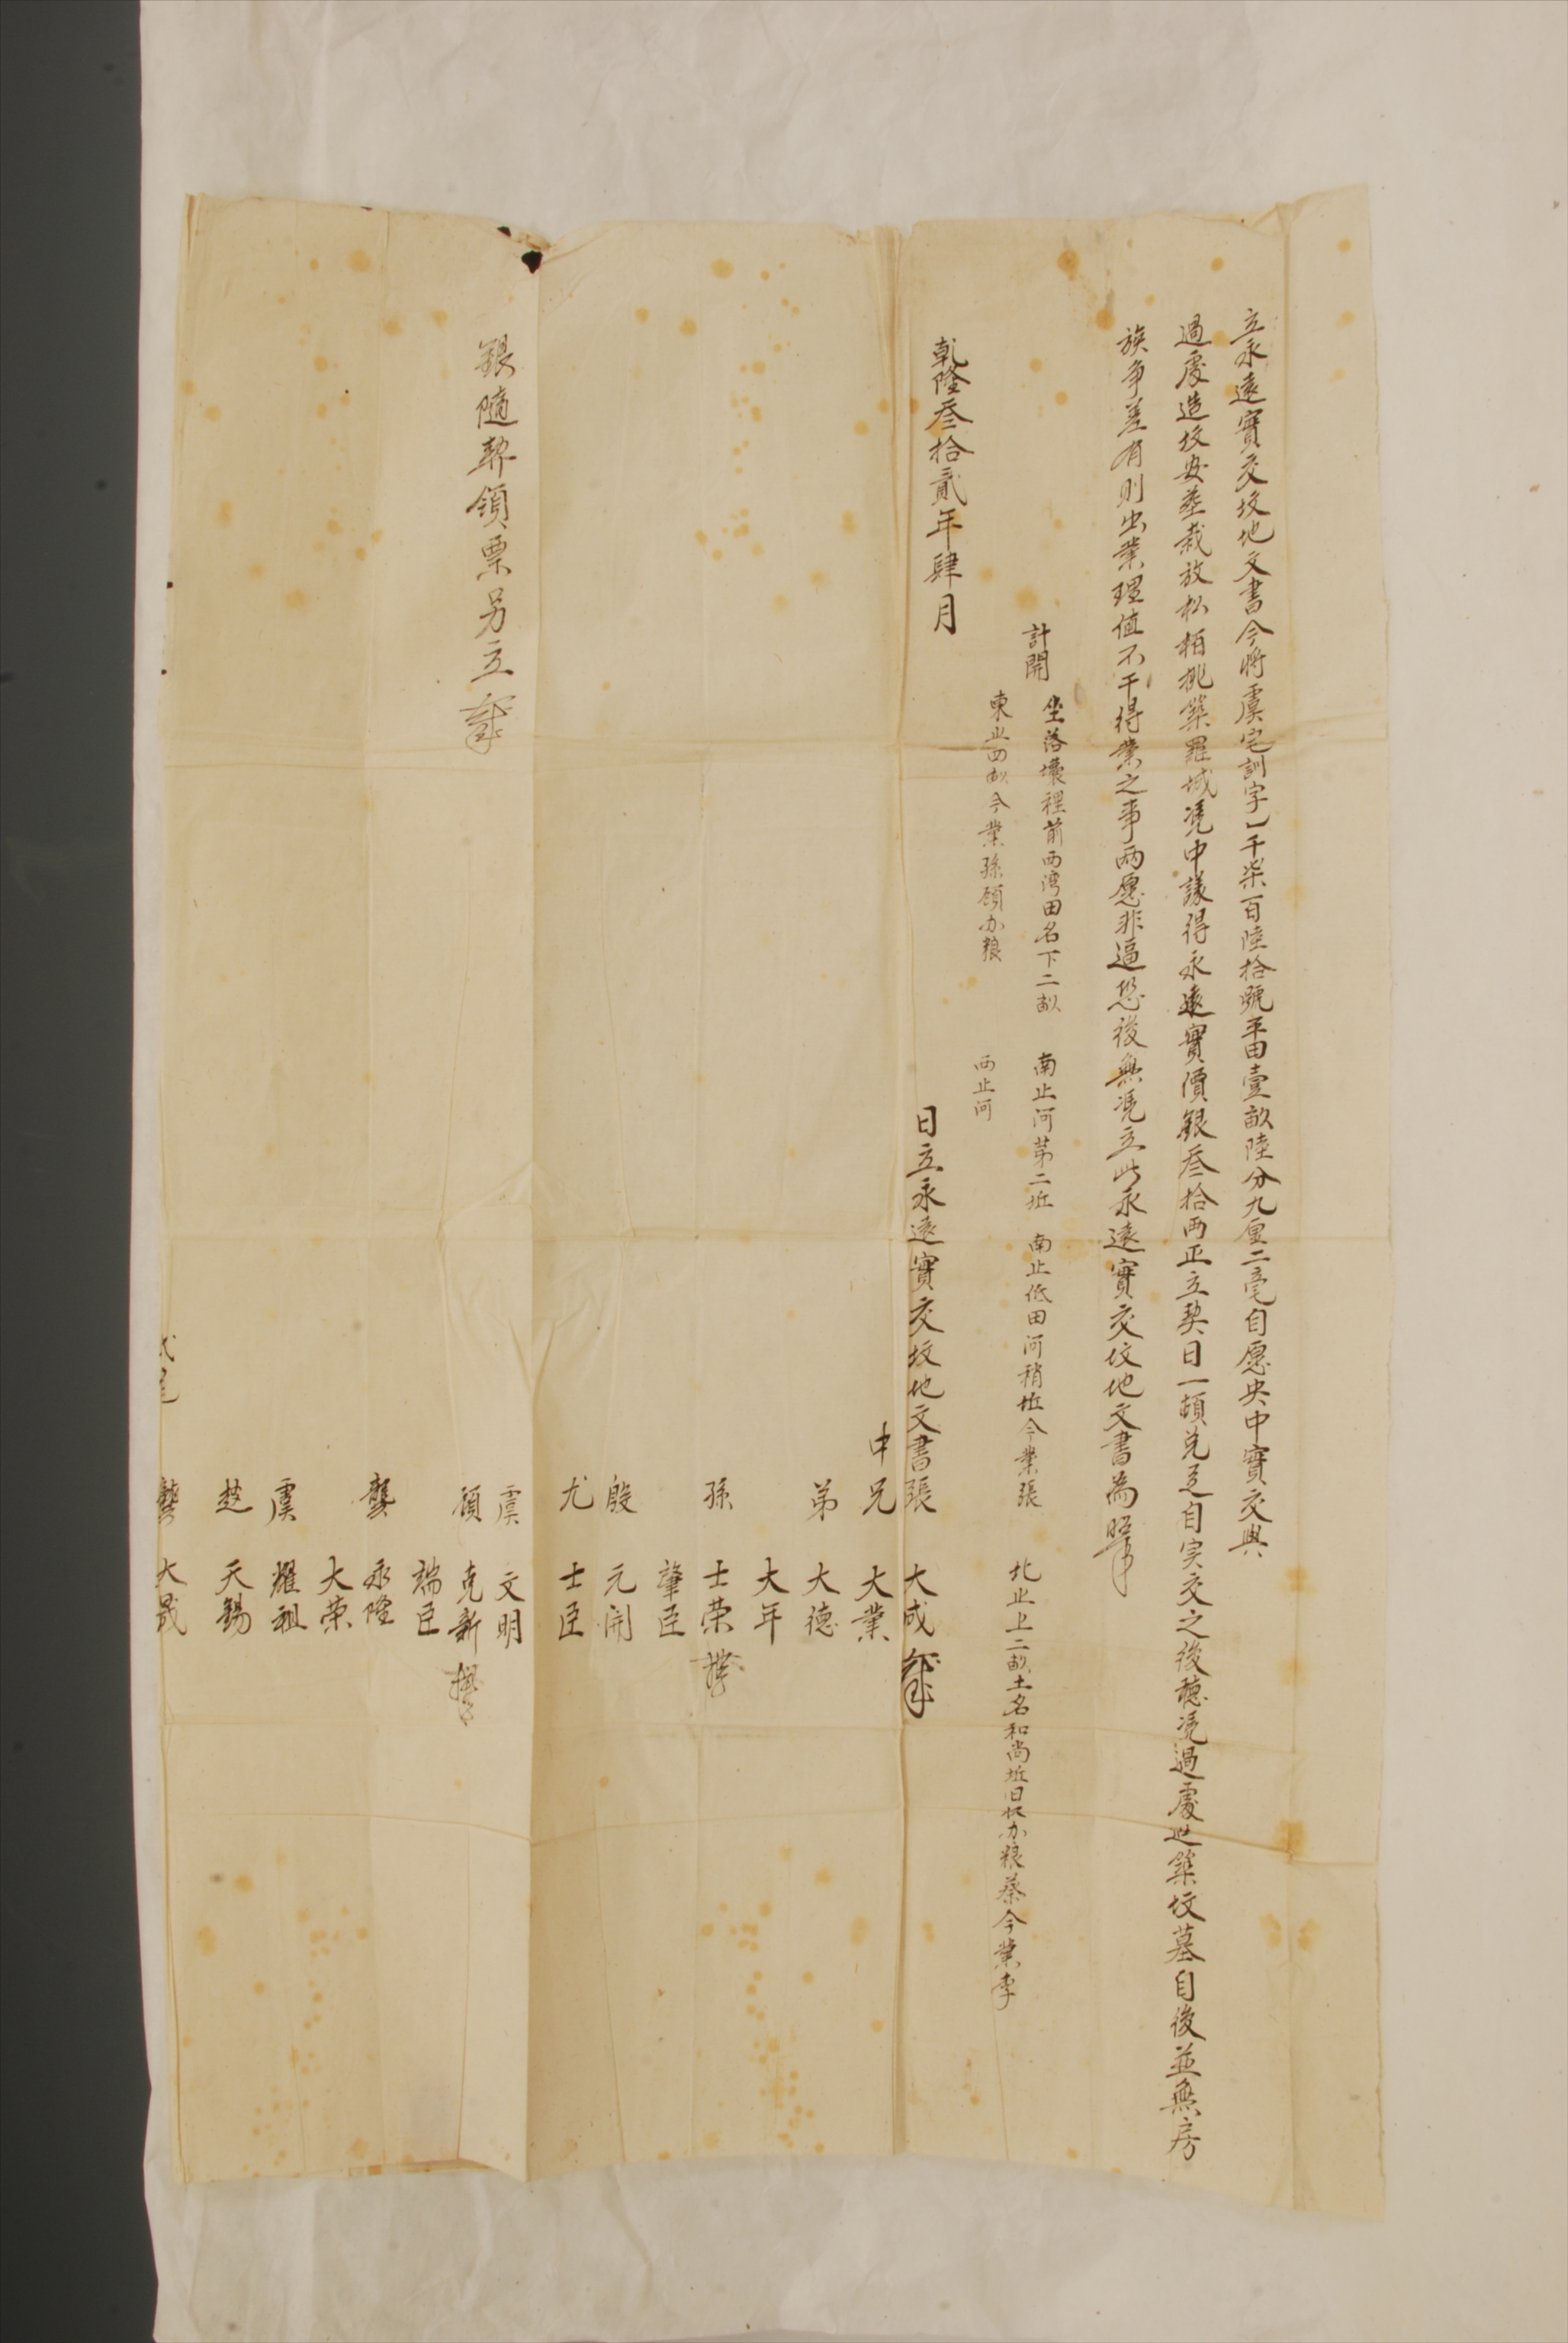 立永遠實交坟地文書今將虞宅訓字一千柒百陸拾號平田壹畝陸分九厘二毫自愿央中實交與
過處造坟安塟栽放松栢挑築羅城凴中議得永遠實價銀叁拾两正立契日一頓兑足自实交之後聽凴過處造築坟墓自後並無房
族争差有則出業理值不干得業之事两愿非逼恐後無凴立此永遠實交坟地文書為照
計開
坐落壩裡前西湾田名下二畝 南止河苐二坵 南止低田河稍坵今業張 北止上二畝土名和尚坵旧办粮蔡今業李
東止四畝今業孫顾办粮 西止河
乾隆叁拾貳年肆月 日立永遠實交坟地文書張大成
中兄 大業
弟 大德
大年
孫 士荣
肇臣
殷 元開
尤 士臣
虞 文明
顧 克新
銀隨契領票另立
端臣
龔 永隆
大荣
虞 耀祖
趙 天錫
龔 大晟